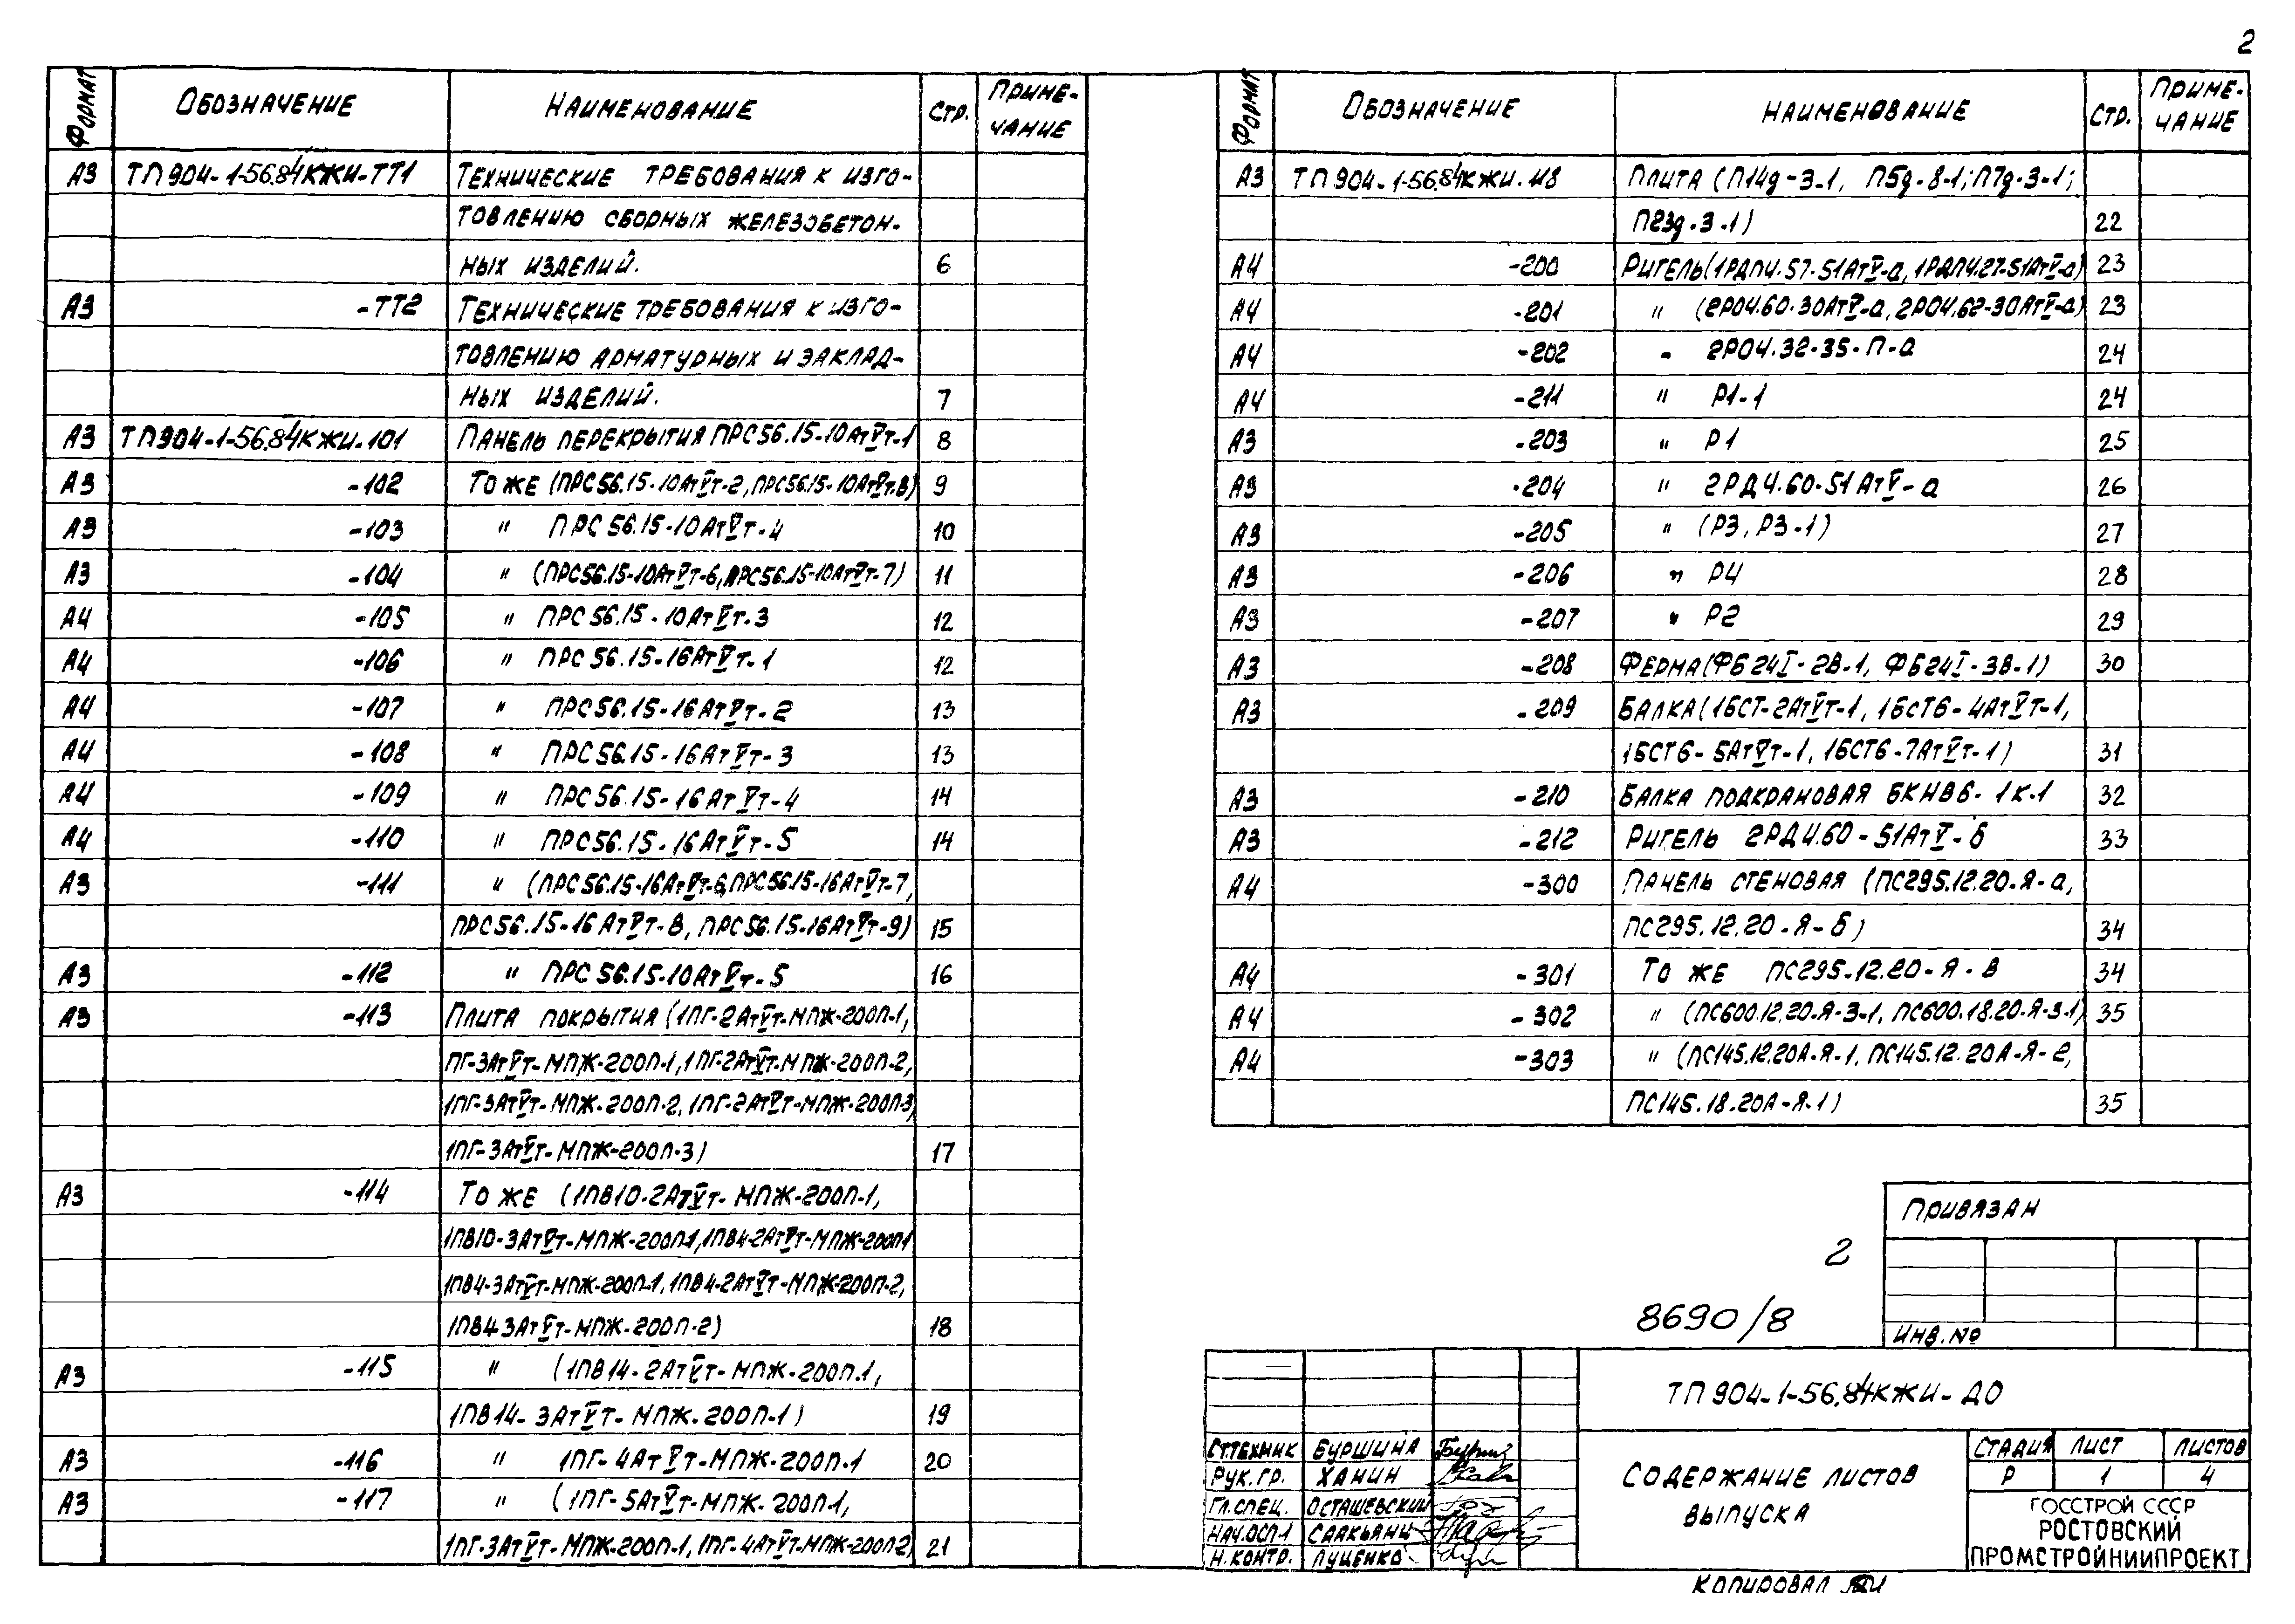 2
Формат Обозначение Наименование Стр. Приме-
чание
А3 ТП904-1-56.84КЖИ-ТТ1 Технические требования к изго-
товлению сборных железобетон-
ных изделий. 6
А3 -ТТ2 Технические требования к изго-
товлению арматурных и заклад-
ных изделий. 7
А3 ТП904-1-56.84КЖИ-101 Панель перекрытия ПРС56.15-10АтVт-1 8
А3 -102 То же (ПРС56.15-10АтVт-2, ПРС56.15-10АтVт-8) 9
А3 -103 " ПРС56.15-10АтVт-4 10
А3 -104 " (ПРС56.15-10АтVт-6, ПРС56.15-10АтVт-7) 11
А4 -105 " ПРС56.15-10АтVт-3 12
А4 -106 " ПРС56.15-16АтVт-1 12
А4 -107 " ПРС56.15-16АтVт-2 13
А4 -108 " ПРС56.15-16АтVт-3 13
А4 -109 " ПРС56.15-16АтVт-4 14
А4 -110 " ПРС56.15-16АтVт-5 14
А3 -111 " (ПРС56.15-16АтVт-6, ПРС56.15-16АтVт-7,
ПРС56.15-16АтVт-8, ПРС56.15-16АтVт-9) 15
А3 -112 " ПРС56.15-10АтVт-5 16
А3 -113 Плита покрытия (1ПГ-2АтVт-МПЖ-200П-1,
ПГ-3АтVт-МПЖ-200П-1, 1ПГ-2АтVт-МПЖ-200П-2,
1ПГ-3АтVт-МПЖ-200П-2, 1ПГ-2АтVт-МПЖ-200П-3,
1ПГ-3АтVт-МПЖ-200П-3) 17
А3 -114 То же (1ПВ10-2АтVт-МПЖ-200П-1,
1ПВ10-3АтVт-МПЖ-200П-1, 1ПВ4-2АтVт-МПЖ-200П-1
1ПВ4-3АтVт-МПЖ-200П-1, 1ПВ4-2АтVт-МПЖ-200П-2,
1ПВ4-3АтVт-МПЖ-200П-2) 18
А3 -115 " (1ПВ14-2АтVт-МПЖ-200П-1,
1ПВ14-3АтVт-МПЖ-200П-1) 19
А3 -116 " 1ПГ-4АтVт-МПЖ-200П-1 20
А3 -117 " (1ПГ-5АтVт-МПЖ-200П-1,
1ПГ-3АтVт-МПЖ-200П-1, 1ПГ-4АтVт-МПЖ-200П-2) 21
Формат Обозначение Наименование Стр. Приме-
чание
А3 ТП904-1-56.84КЖИ-118 Плита (П14д-3-1, П5д-8-1; П7д-3-1;
П23д-3-1) 22
А4 -200 Ригель (1РДП4.57-51АтV-а, 1РДП4.27-51АтV-а) 23
А4 -201 " (2РО4.60-30АтV-а, 2РО4.62-30АтV-а) 23
А4 -202 " 2РО4.32-35-П-а 24
А4 -211 " Р1-1 24
А3 -203 " Р1 25
А3 -204 " 2РД4.60-51АтV-а 26
А3 -205 " (Р3, Р3-1) 27
А3 -206 " Р4 28
А3 -207 " Р2 29
А3 -208 Ферма (ФБ24I-2В-1, ФБ24I-3В-1) 30
А3 -209 Балка (1БСТ-2АтVт-1, 1БСТ6-4АтVт-1,
1БСТ6-5АтVт-1, 1БСТ6-7АтVт-1) 31
А3 -210 Балка подкрановая БКНВ6-1К-1 32
А3 -212 Ригель 2РД4.60-51АтV-б 33
А4 -300 Панель стеновая (ПС295.12.20-Я-а,
ПС295.12.20-Я-б) 34
А4 -301 То же ПС295.12.20-Я-в 34
А4 -302 " (ПС600.12.20-Я-3-1, ПС600.18.20-Я-3-1) 35
А4 -303 " (ПС145.12.20А-Я-1, ПС145.12.20А-Я-2,
ПС145.18.20А-Я-1) 35
Привязан
Инв.№
2
8690/8
ТП904-1-56.84КЖИ-ДО
Ст.техник Буршина
Рук.гр. Ханин
Гл.спец. Осташевский
Нач.ОСП-1 Саакьянц
Н.контр. Луценко
Содержание листов
выпуска
Стадия Лист Листов
Р 1 4
ГОССТРОЙ СССР
РОСТОВСКИЙ
ПРОМСТРОЙНИИПРОЕКТ
Копировал